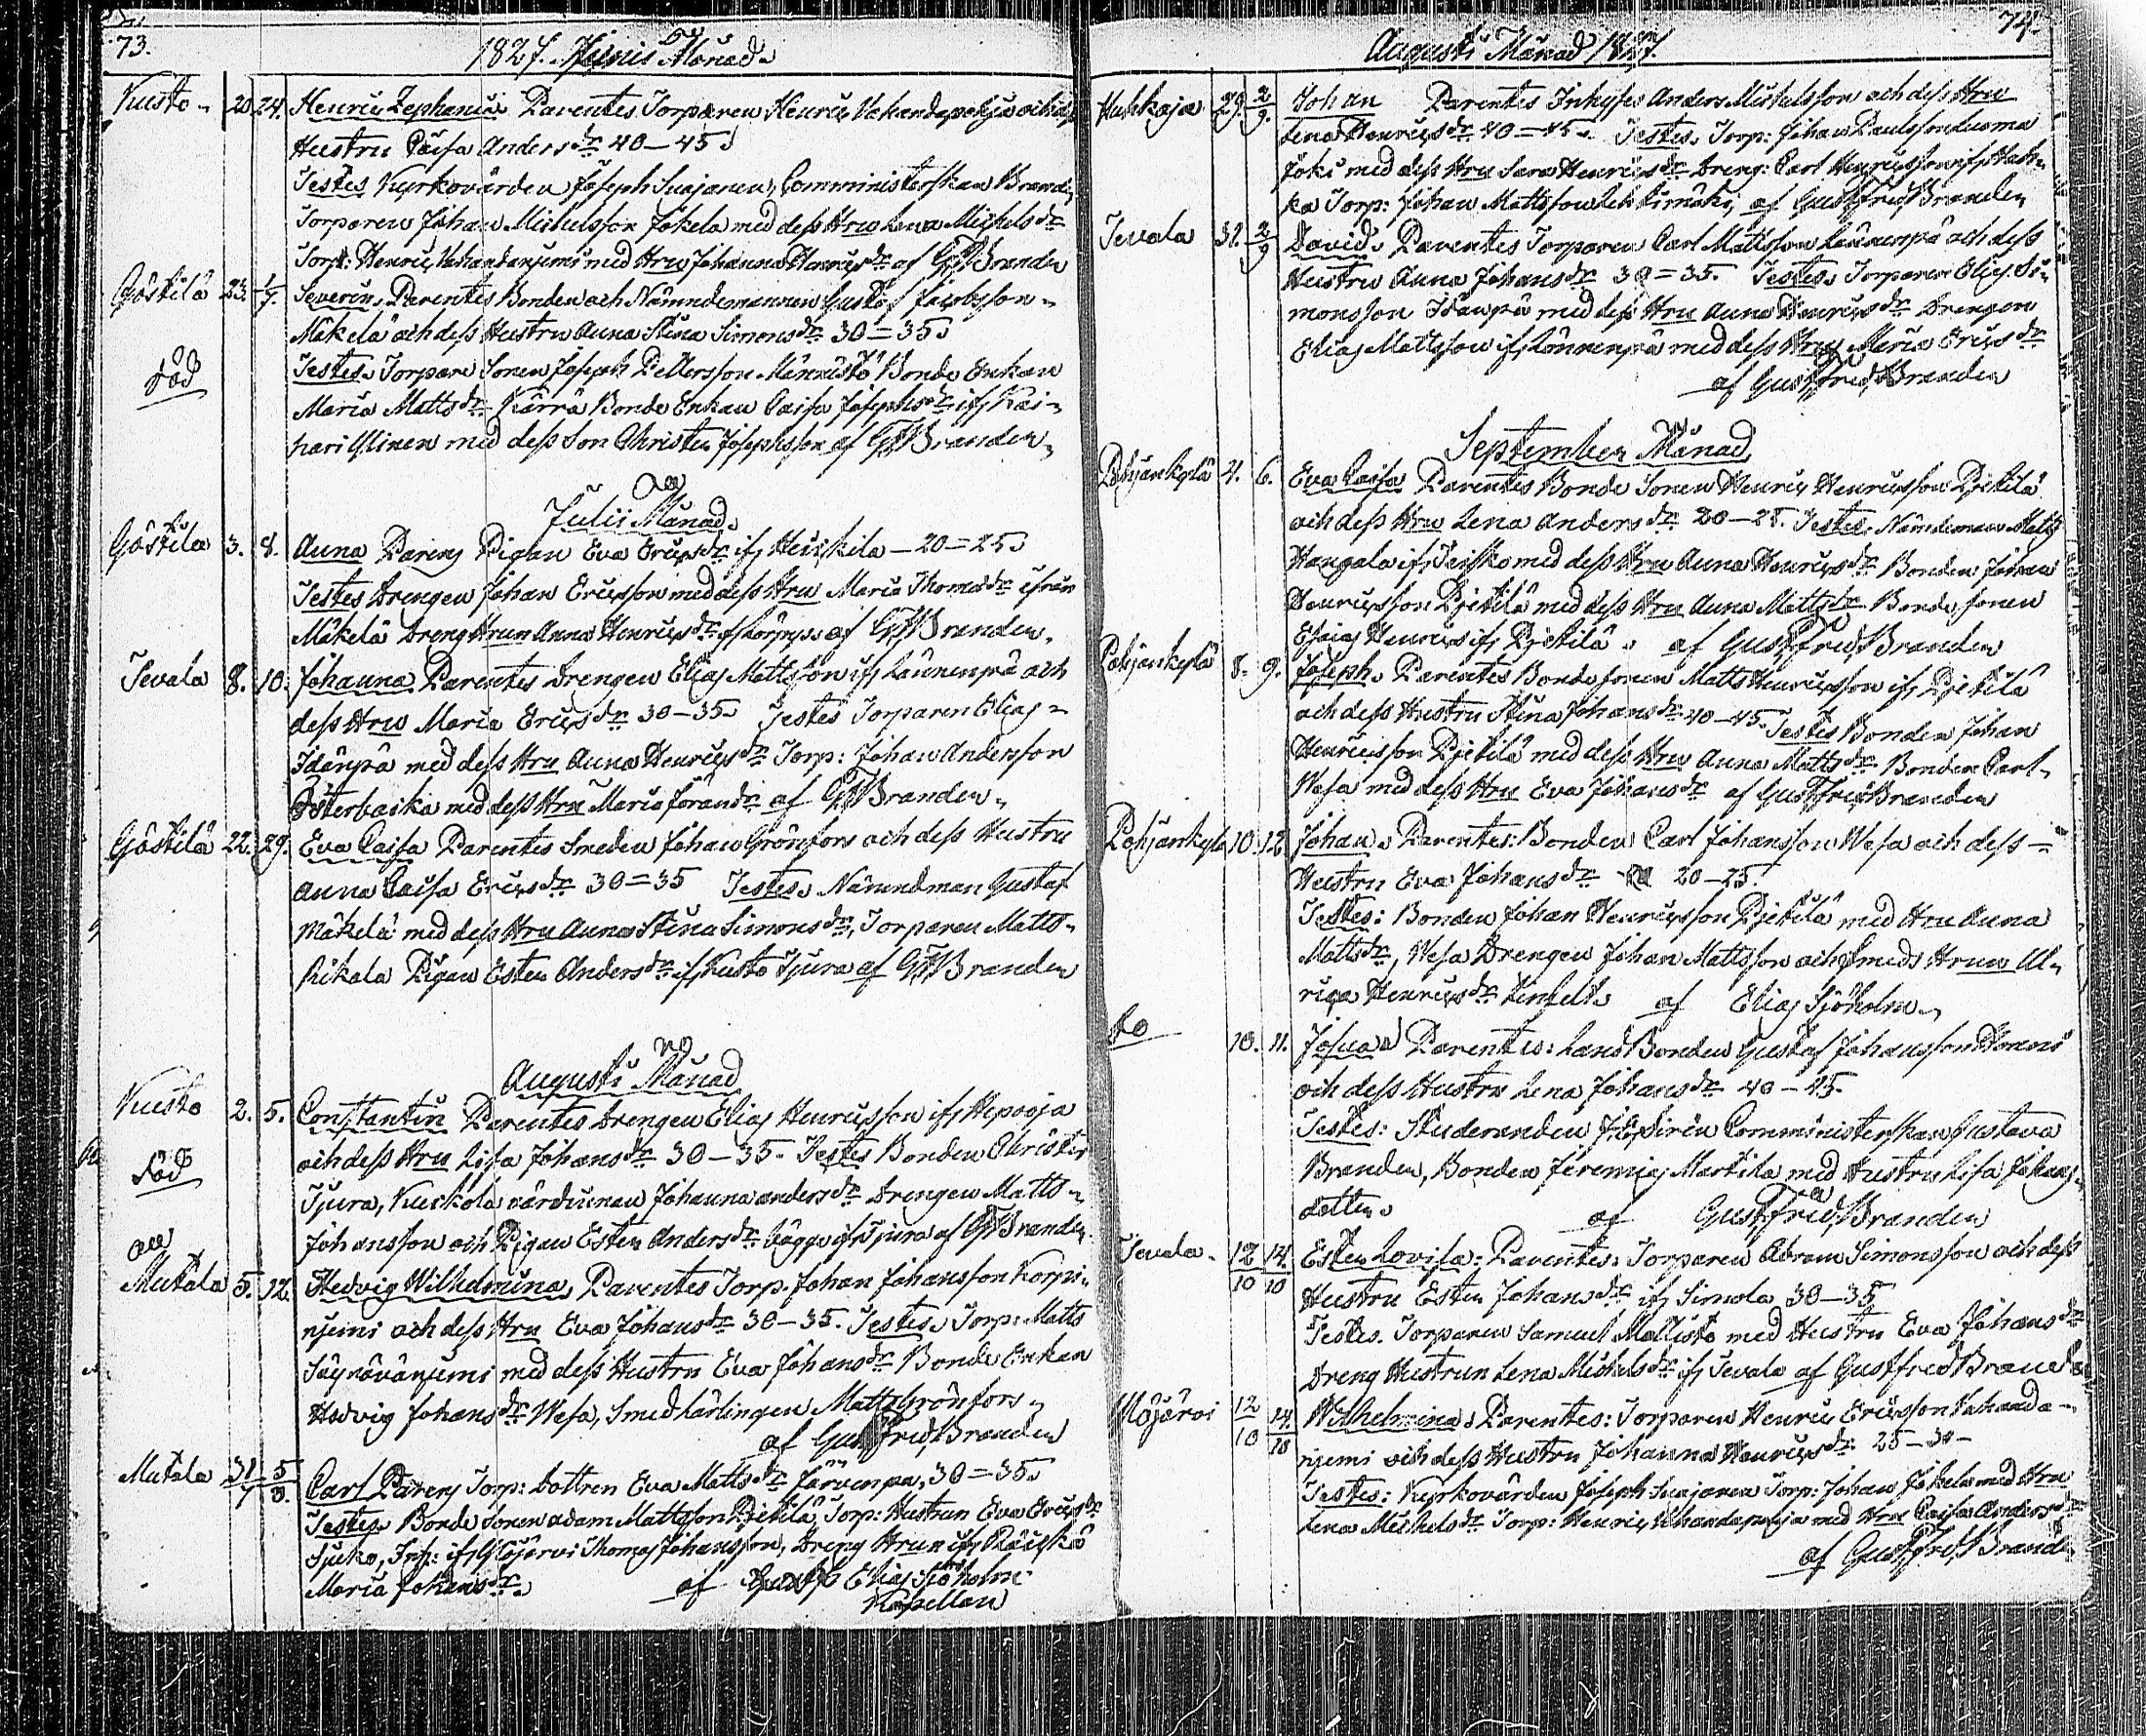 73.
1827. Junii Månad.
Kusto 20. 24. Henric Zephanias Parentes Torparen Henric Vahandapohja och dess
Hustru Caisa Anders dr 40–45.
Testes Kyrkovärden Joseph Suojanen, Comministerskan Brand,
Torparen Johan Michelsson Jokela med dess Hru Lena Michels dr
Torp: Henric Vahandanjemi med Hru Johanna Henrics dr af GFBranden
Göstilä 23. 1/7. Severin, Parentes Bonden och Nämndemannen Gustaf Jacobsson
Mäkelä och dess Hustru Anna Stina Simons dr 30=35.
död
Testes. Torpare Sonen Joseph Pettersson Männistö Bonde Enkan
Maria Matts dr Kärrä Bonde Enkan Caisa Josephs dr ifs Kai-
hari med dess Son Christer Josephsson af GFBranden
Julii Månad.
Göstila 3. 8. Anna Parens Pigan Eva Erics dr ifs Heickila – 20=25.
Testes Drengen Johan Ericsson med dess Hru Maria Thomas dr ifrån
Mäkelä Dreng Hrun Anna Henrics dr af GFBranden.
Tevala 8. 10. Johanna Parentes Drengen Elias Mattsson ifs Lännenpä och
dess Hru Maria Erics dr 30–35. Testes Torparen Elias
Idänpä med dess Hru Anna Henrics dr Torp: Johan Andersson
Österbacka med dess Hru Maria Jörans dr af GFBranden
Göstilä 22. 29. Eva Caisa Parentes Smeden Johan Grönfors och dess Hustru
Anna Caisa Erics dr 30=35 Testes. Nämndman Gustaf
Mäkelä med dess Hru Anna Stina Simons dr, Torparen Matts
Rikala Pigan Ester Anders dr ifs Kusto Tjura af GFBranden
Augusti Månad
Kusto 2. 5. Constantin Parentes Drengen Elias Henricsson ifs Hepooja
och dess Hru Lisa Johans dr 30–35. Testes Bonden Christer
död
Tjura, Kuckola värdinnan Johanna Anders dr Drengen Matts
Johansson och Pigan Ester Anders dr bägge ifs Tjura af GFBranden
Mutala 5. 12. Hedvig Wilhelmina, Parentes Torp. Johan Johansson Korpi-
njemi och dess Hru Eva Johans dr 30–35. Testes. Torp: Matts
Säynävänjemi med dess Hustru Eva Johans dr Bonde Enkan
Hedvig Johans dr Wesa, Smed Lärlingen Matts Grönfors
af Gust Fred Branden
Mutala 31/7 5/8. Carl Parens Torp: Dottren Eva Matts dr Järvenpä, 30=35.
Testes. Bonde Sonen Adam Mattsson Pjetilä, Torp: Hustrun Eva Erics dr
Sjuko, Inh: ifs Ylöjärvi Thomas Johansson, Dreng Hrun ifs Räickä
Maria Johans dr. af Elias Sjöholm
Kapellan
74.
Augusti Månad 1827.
Huhkaja 29. 2/9. Johan Parentes Inhyses Anders Michelsson och dess Hru
Lena Henrics dr 40=45. Testes. Torp: Johan Paulsson Luoma
Joki med dess Hru Sara Henrics dr Dreng: Carl Henricsson ifs Huh-
ka Torp: Johan Mattsson Lehtimäki, af Gust Fred Branden
Tevala 31. 2/9 David. Parentes Torparen Carl Mattsson Lännenpä och dess
Hustru Anna Johans dr 30=35. Testes. Torparen Elias Si-
monsson Idänpä med dess Hru Anna Henrics dr Drengen
Elias Mattsson ifs Lännenpä med dess Hru Maria Erics dr
af Gust Fred Branden
September Månad
Pohjankylä 4. 6. Eva Caisa Parentes Bonde Sonen Henric Henricsson Pjetilä
och dess Hru Lena Anders dr 20–25. Testes. Nämdeman Matts
Hangala ifs med dess Hru Anna Henrics dr Bonden Johan
Henricsson Pjetilä med dess Hru Anna Matts dr Bonde Sonen
Esaias Henrics ifs Pjetilä. af Gust Fred Branden
Pohjankylä 8. 9. Joseph. Parentes Bonde Sonen Matts Henricsson ifs Pjetilä
och dess Hustru Stina Johans dr 40–45. Testes Bonden Johan
Henricsson Pjetilä med dess Hru Anna Matts dr Bonden Carl
Wesa med dess Hru Eva Johans dr af Gust Fred Branden
Pohjankylä 10. 12 Johan. Parentes: Bonden Carl Johansson Wesa och dess
Hustru Eva Johans dr 20–25.
Testes: Bonden Johan Henricsson Pjetilä med Hru Anna
Matts dr, Wesa Drengen Johan Mattsson och Smeds Hrun Ul-
rica Henrics dr af Elias Sjöholm
do 10. 11. Josua Parentes: Lands Bonden Gustaf Johansson Horani
och dess Hustru Lena Johans dr 40–45.
Testes: Studeranden Sirén Comministerskan Gustava
Branden, Bonden Jeremias Markila med Hustru Lisa Johans-
dotter. af Gust Fred Branden
Tevala 12/10 14/10 Ester Lovisa: Parentes: Torparen Abram Simonsson och dess
Hustru Ester Johans dr ifs Simola 30–35
Testes. Torparen Samuel Mattisto med Hustru Eva Johans dr
Dreng Hustrun Lena Michels dr ifs Tevala af Gust Fred Branden
Ylöjärvi 12/10 14/10 Wilhelmina. Parentes: Torparen Henric Ericsson Vahanda-
njemi och dess Hustru Johanna Henrics dr 25–30
Testes: Kyrkovärden Joseph Suojanen Torp: Johan Jokela med Hru
Lena Michels dr Torp: Henric Vahandapohja med Hru Caisa Anders dr
af Gust Fred Branden